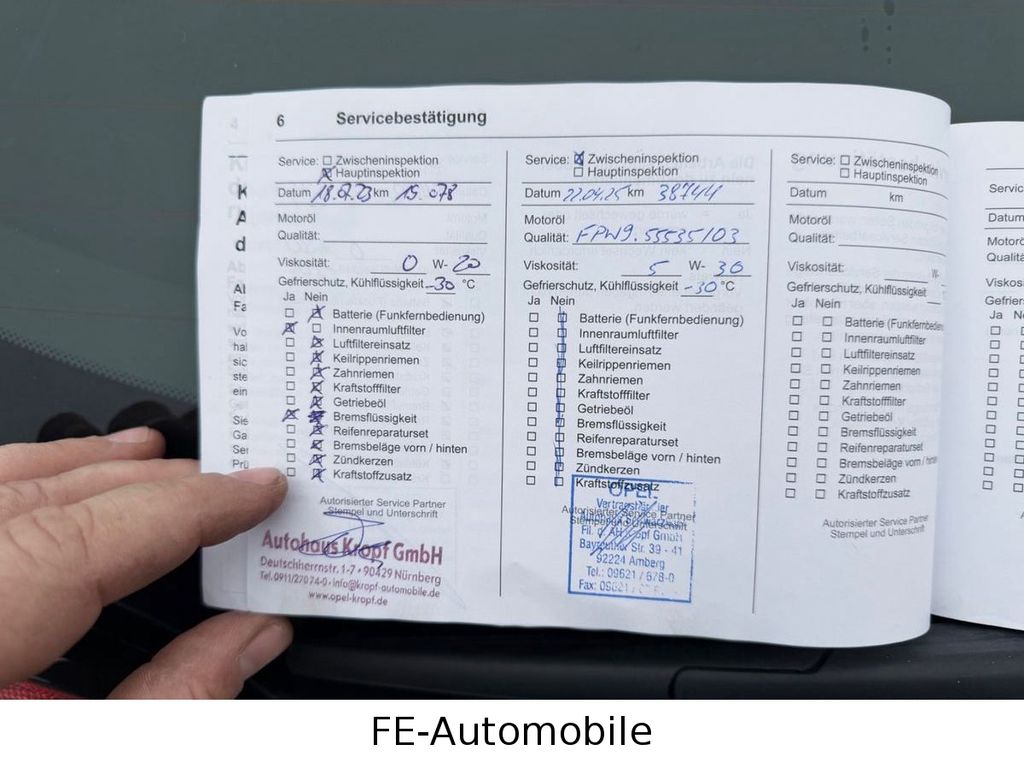 6 Servicebestätigung
Service: Zwischeninspektion
Hauptinspektion
Datum 18.07.23 km 15.078
Motoröl
Qualität:
Viskosität: 0 W- 20
Gefrierschutz, Kühlflüssigkeit -30 °C
Ja Nein
Batterie (Funkfernbedienung)
Innenraumluftfilter
Luftfiltereinsatz
Keilrippenriemen
Zahnriemen
Kraftstofffilter
Getriebeöl
Bremsflüssigkeit
Reifenreparaturset
Bremsbeläge vorn / hinten
Zündkerzen
Kraftstoffzusatz
Autorisierter Service Partner
Stempel und Unterschrift
Autohaus Kropf GmbH
Deutschherrnstr. 1-7 • 90429 Nürnberg
Tel. 0911/27074-0 • info@kropf-automobile.de
www.opel-kropf.de
Service: Zwischeninspektion
Hauptinspektion
Datum 22.04.25 km 38744
Motoröl
Qualität: FPW9.55535/03
Viskosität: 5 W- 30
Gefrierschutz, Kühlflüssigkeit -30 °C
Ja Nein
Batterie (Funkfernbedienung)
Innenraumluftfilter
Luftfiltereinsatz
Keilrippenriemen
Zahnriemen
Kraftstofffilter
Getriebeöl
Bremsflüssigkeit
Reifenreparaturset
Bremsbeläge vorn / hinten
Zündkerzen
Kraftstoffzusatz
OPEL
Autorisierter Service Partner
Stempel und Unterschrift
Fil. d. AH Kropf GmbH
Bayreuther Str. 39 - 41
92224 Amberg
Tel.: 09621 / 678-0
Fax: 09621
Service: Zwischeninspektion
Hauptinspektion
Datum km
Motoröl
Qualität:
Viskosität: W-
Gefrierschutz, Kühlflüssigkeit
Ja Nein
Batterie (Funkfernbedien
Innenraumluftfilter
Luftfiltereinsatz
Keilrippenriemen
Zahnriemen
Kraftstofffilter
Getriebeöl
Bremsflüssigkeit
Reifenreparaturset
Bremsbeläge vorn / hinten
Zündkerzen
Kraftstoffzusatz
Autorisierter Service Partner
Stempel und Unterschrift
Datum
Ja
FE-Automobile